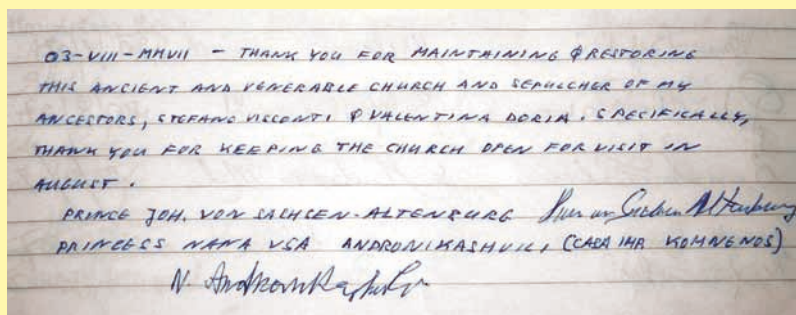 03-VIII-MMVII - THANK YOU FOR MAINTAINING & RESTORING
THIS ANCIENT AND VENERABLE CHURCH AND SEPULCHER OF MY
ANCESTORS, STEFANO VISCONTI & VALENTINA DORIA. SPECIFICALLY,
THANK YOU FOR KEEPING THE CHURCH OPEN FOR VISIT IN
AUGUST.
PRINCE JOH. VON SACHSEN-ALTENBURG
PRINCESS NANA USA ANDRONIKASHVILI, (CASA IMP KOMNENOS)